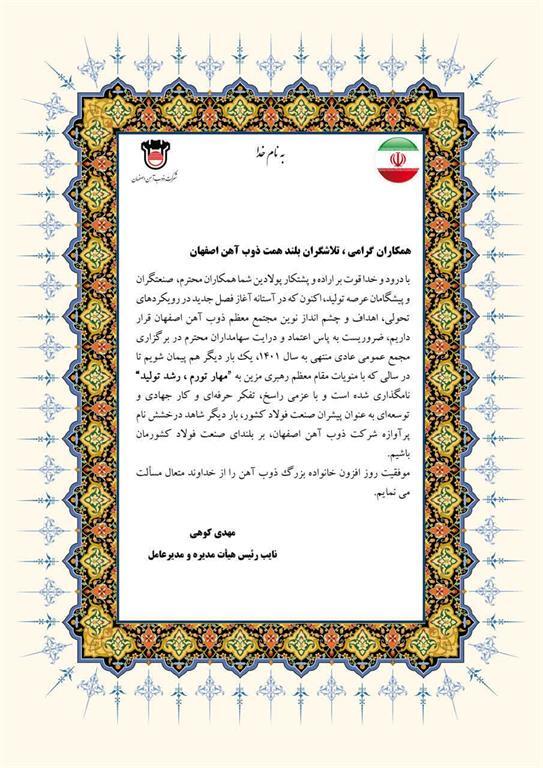 به نام خدا
شرکت ذوب آهن اصفهان
همکاران گرامی ، تلاشگران بلند همت ذوب آهن اصفهان
با درود و خدا قوت بر اراده و پشتکار پولادین شما همکاران محترم، صنعتگران
و پیشگامان عرصه تولید، اکنون که در آستانه آغاز فصل جدید در رویکردهای
تحولی، اهداف و چشم انداز نوین مجتمع معظم ذوب آهن اصفهان قرار
داریم، ضروریست به پاس اعتماد و درایت سهامداران محترم در برگزاری
مجمع عمومی عادی منتهی به سال ۱۴۰۱، یک بار دیگر هم پیمان شویم تا
در سالی که با منویات مقام معظم رهبری مزین به "مهار تورم ، رشد تولید"
نامگذاری شده است و با عزمی راسخ، تفکر حرفه‌ای و کار جهادی و
توسعه‌ای به عنوان پیشران صنعت فولاد کشور، بار دیگر شاهد درخشش نام
پرآوازه شرکت ذوب آهن اصفهان، بر بلندای صنعت فولاد کشورمان
باشیم.
موفقیت روز افزون خانواده بزرگ ذوب آهن را از خداوند متعال مسألت
می نمایم.
مهدی کوهی
نایب رئیس هیأت مدیره و مدیرعامل